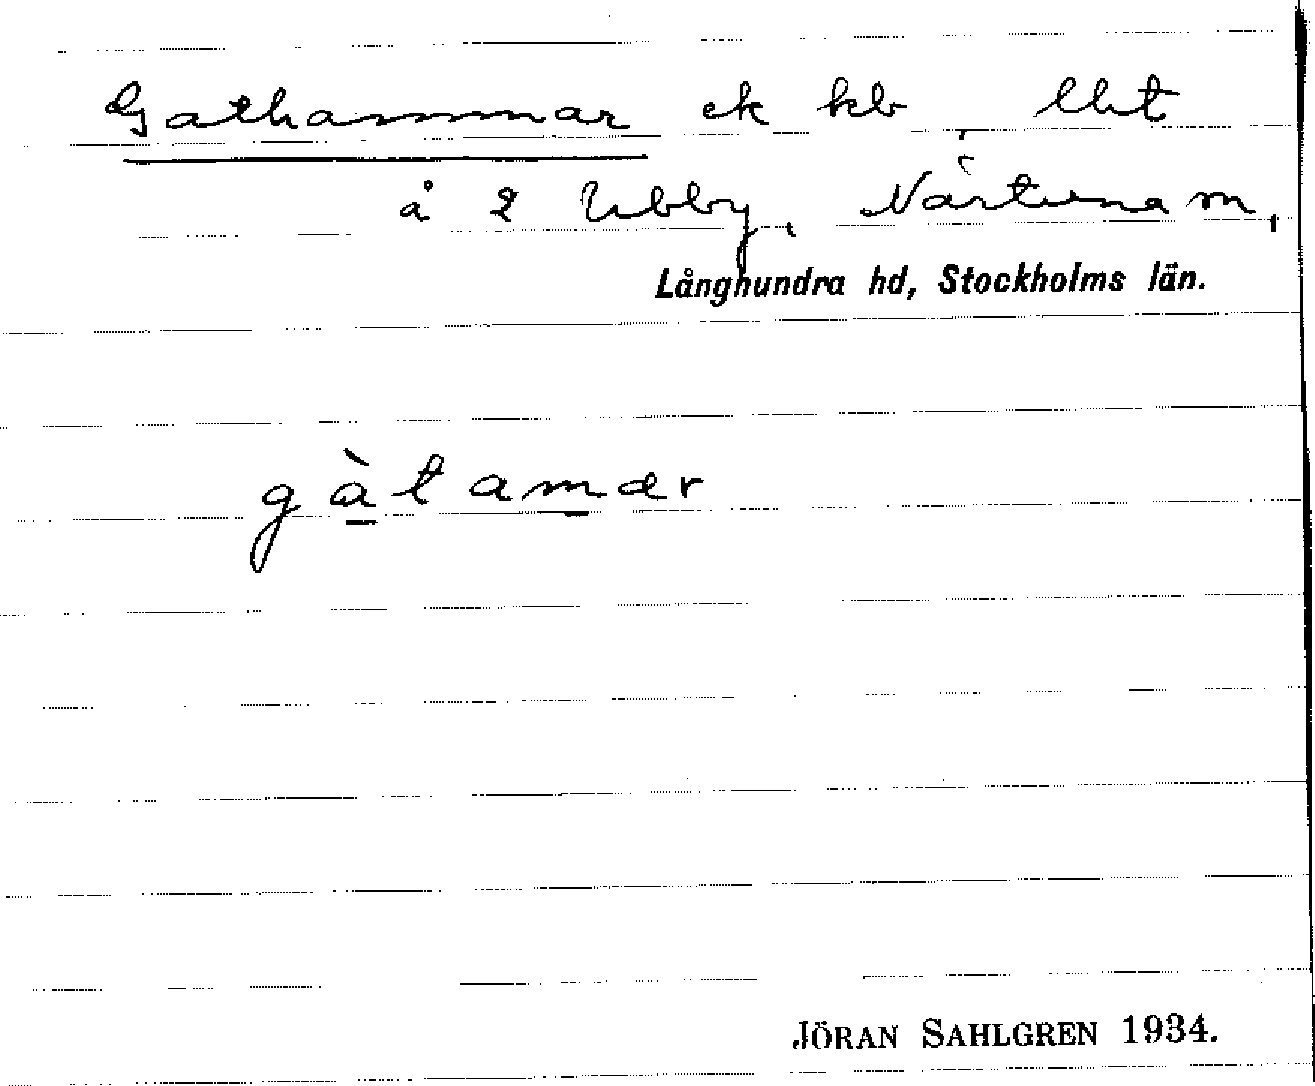 Gathammar ek kb, lht
å 2 Ubby, Närtuna sn,
Långhundra hd, Stockholms län.
gàtamær
JÖRAN SAHLGREN 1934.